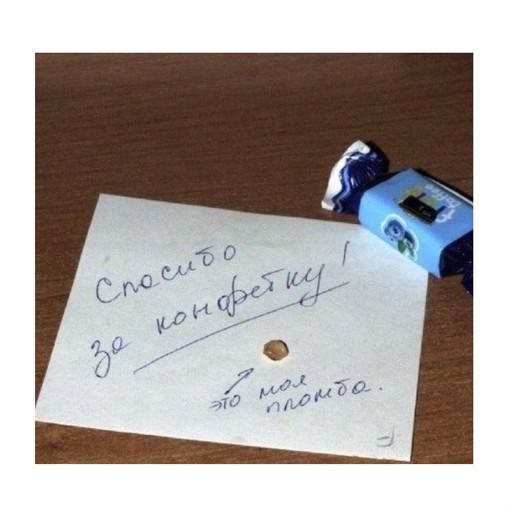 Спасибо
за конфетку!
это моя
пломба.